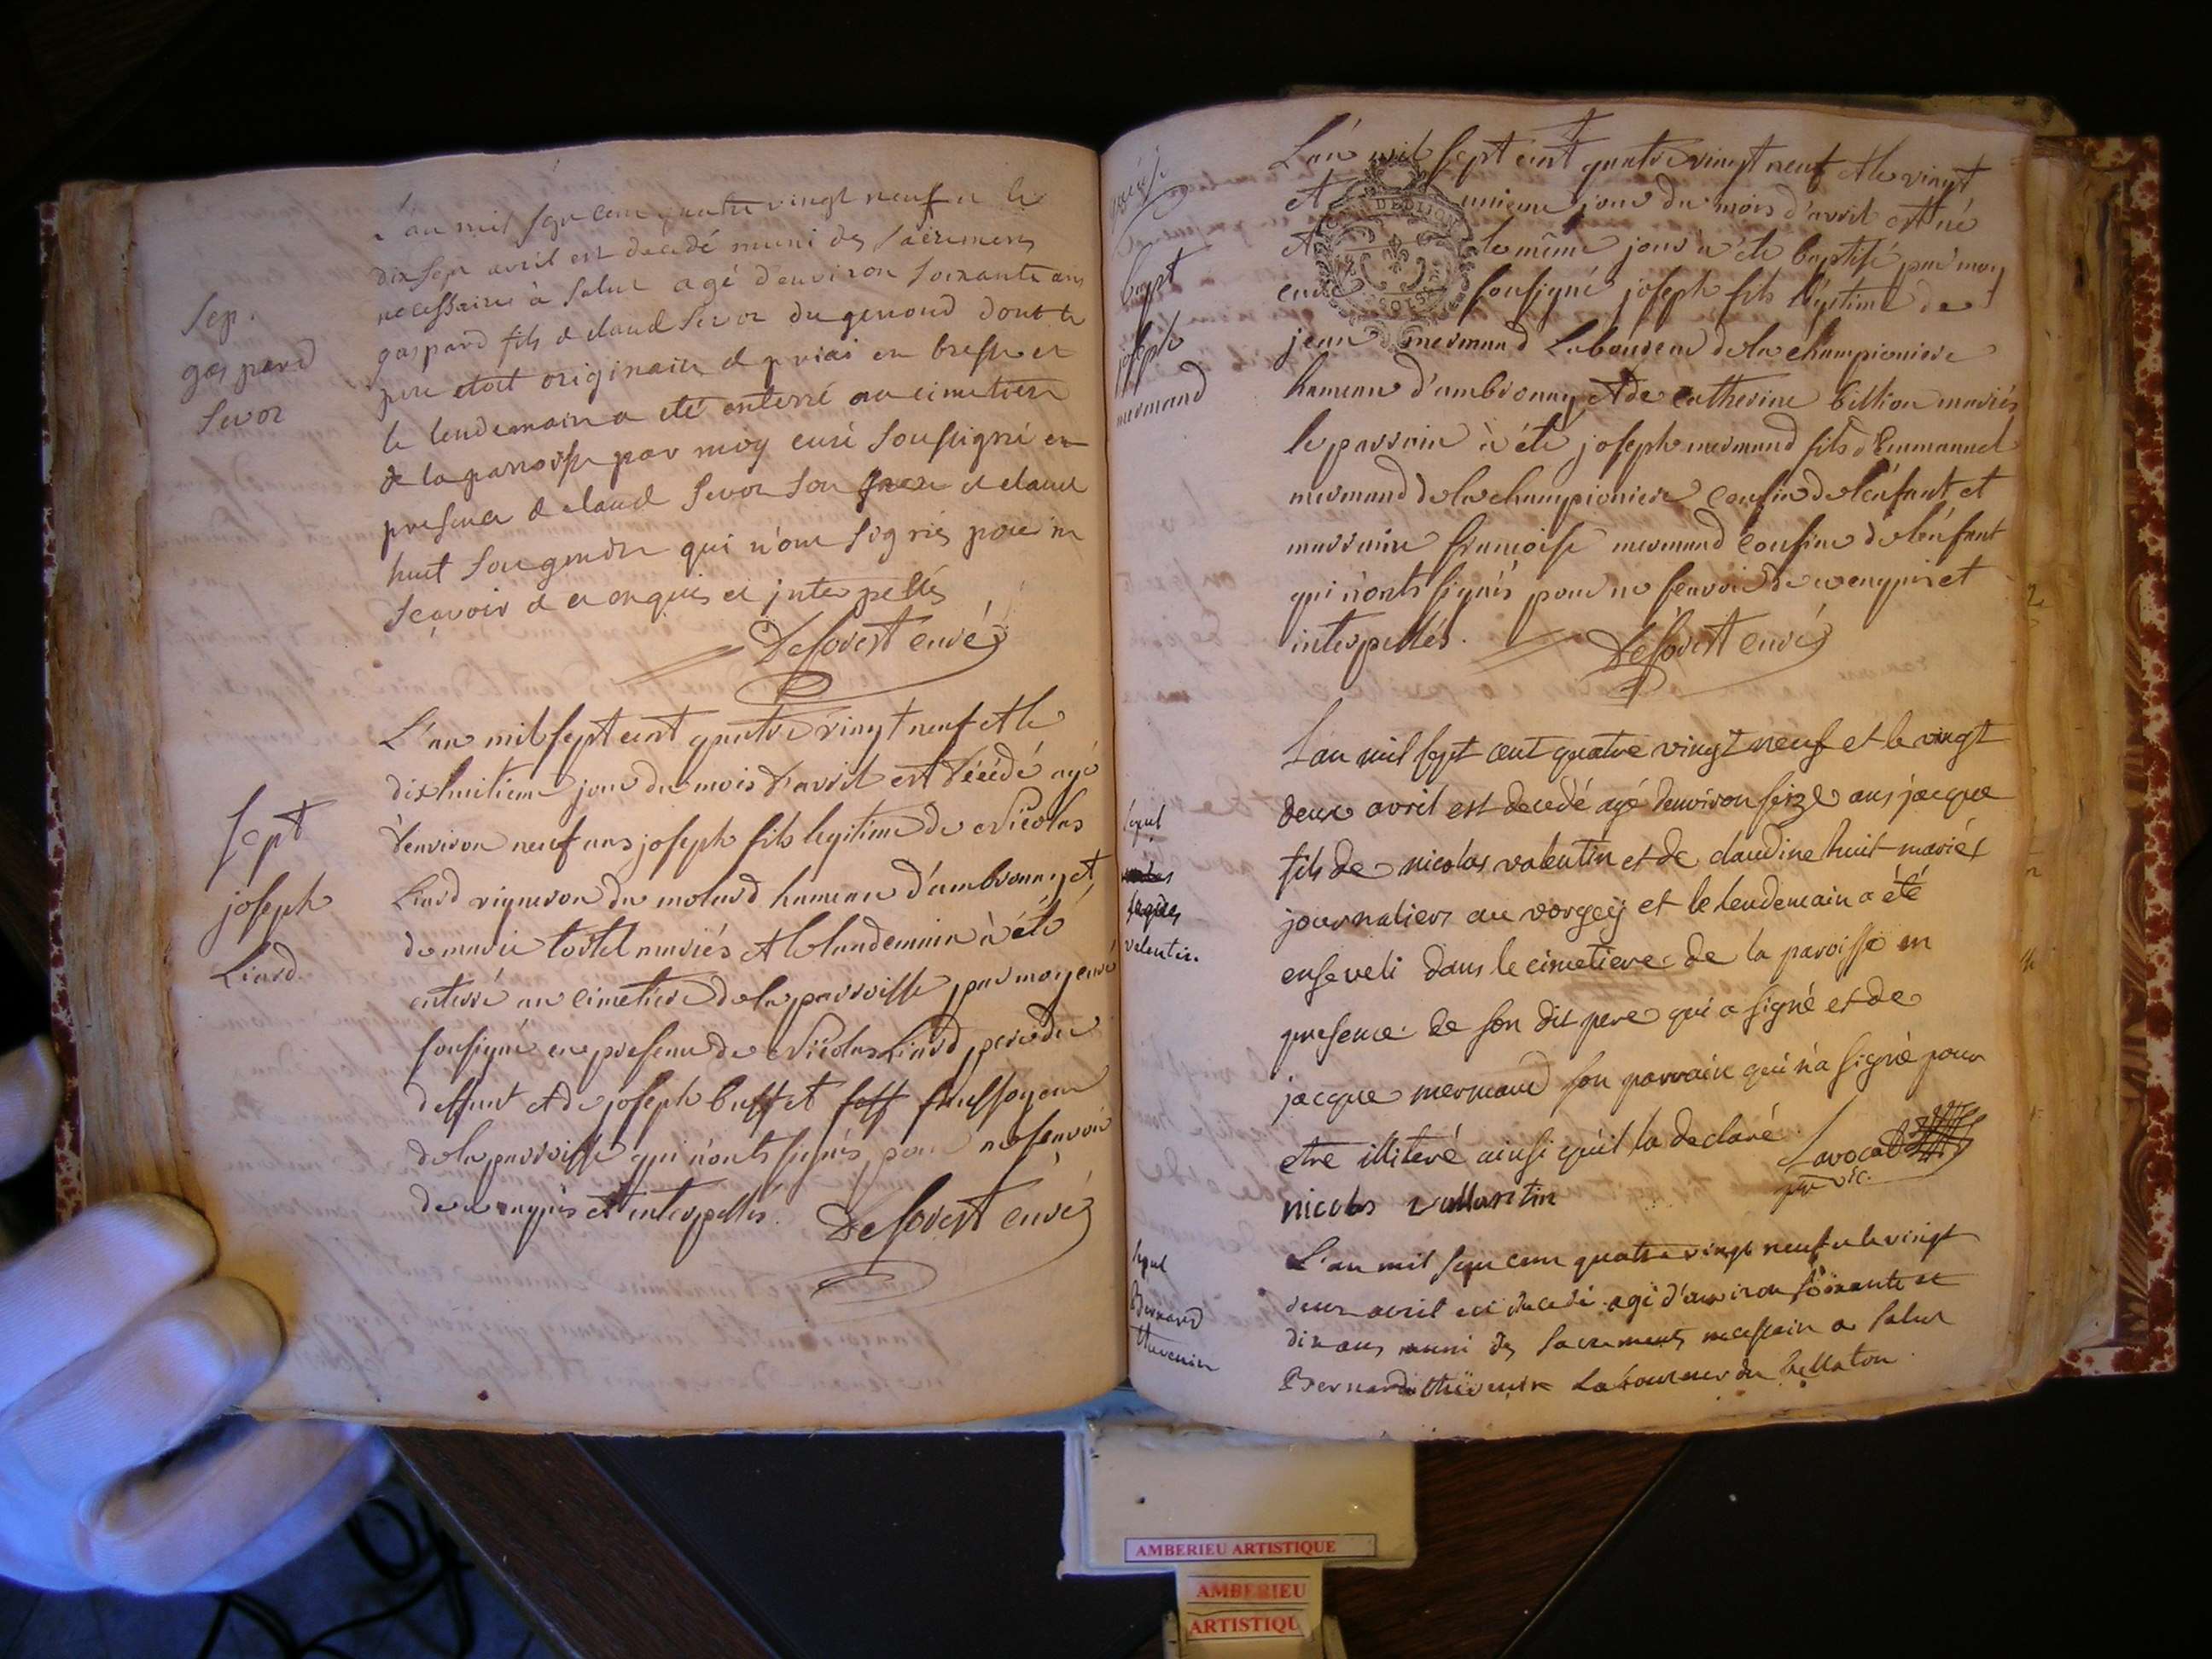 Sep.
gaspard
Sevoz
L'an mil sept cent quatre vingt neuf et le
dix sept avril est decedé muni des sacremens
necessaires à salut agé d'environ soixante ans
gaspard fils de claud Sevoz du genoud dont le
pere etoit originaire de priai en bresse et
le lendemain a eté enterré au cimetiere
de la parroisse par moy curé soussigné en
presence de claud Sevoz son frere et claud
huit son gendre qui n'ont signés pour ne
sçavoir de ce enquis et interpellés
Desovert curé
Sept
joseph
Liard.
L'an mil sept cent quatre vingt neuf et le
dix huitieme jour du mois d'avril est décédé agé
d'environ neuf ans joseph fils legitime de Nicolas
Liard vigneron du molard hameau d'ambronnay et
de marie tortel mariés et le landemain à été
enterré au cimetiere de la parroisse par moy curé
sousigné en presence de Nicolas Liard pere du
deffunt et de joseph buffet foss faussoyeur
de la parroisse qui n'onts signés pour ne senvoir
de ce enquis et interpellés.
Desovert curé
bapt
joseph
mermand
L'an mil sept cent quatre vingt neuf et le vingt
et unieme jour du mois d'avril est né
et le même jour à été baptisé par moy
curé sousigné joseph fils légitime de
DE DIJON
jean mermand Laboureur de la championiere
hameau d'ambronnay et de catherine billion mariés
le parrain à été joseph mermand fils d'Emmanuel
mermand de la championiere cousin de l'enfant et
marraine francoise mermand cousine de l'enfant
qui n'onts signés pour ne senvoir de ce enquis et
interpellés.
Desovert curé
sepul
jaques
valentin.
L'an mil sept cent quatre vingt neuf et le vingt
deux avril est decedé agé d'environ seize ans jacque
fils de nicolas valentin et de claudine huit mariés
journaliers au vorgey et le lendemain a été
enseveli dans le cimetiere de la paroisse en
presence de son dit pere qui a signé et de
jacque mermand son parrain qui n'a signé pour
etre illiteré ainsi qu'il la declaré
Lavocat
vic.
nicolas vallantin
sepul
Bernard
thevenin
L'an mil sept cent quatre vingt neuf et le vingt
deux avril est decedé agé d'environ soixante et
dix ans muni des sacrements necessaire a salut
Bernard thevenin Laboureur du bellaton
AMBERIEU ARTISTIQUE
AMBERIEU
ARTISTIQU